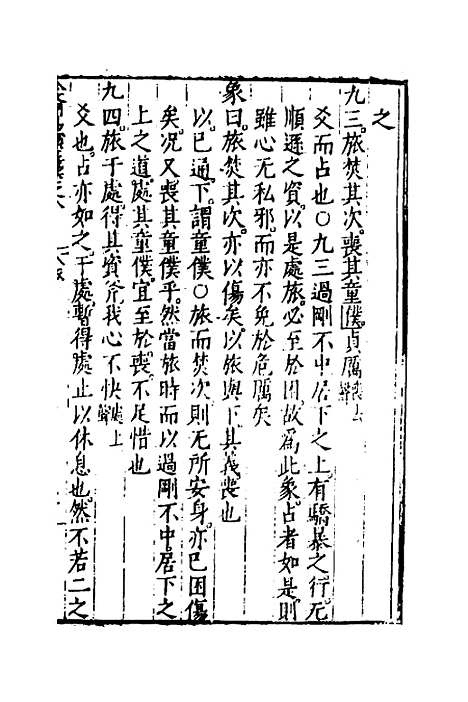 之
九三。旅焚其次。喪其童僕。貞厲。喪去聲
爻而占也○九三過剛不中。居下之上。有驕暴之行。无
順遜之資。以是處旅。必至於困。故爲此象。占者如是。則
雖心无私邪。而亦不免於危厲矣
象曰。旅焚其次。亦以傷矣。以旅與下。其義喪也
以。已通。下。謂童僕○旅而焚次。則无所安身。亦已困傷
矣。况又喪其童僕乎。然當旅時。而以過剛不中。居下之
上之道。處其童僕。宜至於喪。不足惜也
九四。旅于處。得其資斧。我心不快。處上聲
爻也。占亦如之。于處。暫得處止以休息也。然不若二之